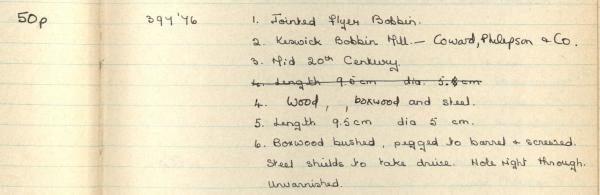 50p 394'76 1. Jointed Flyer Bobbin.
2. Keswick Bobbin Mill. — Coward, Philipson & Co.
3. Mid 20th Century
4. Length 9.5cm dia. 5.8cm
4. Wood, , boxwood and steel.
5. Length 9.5cm dia 5 cm.
6. Boxwood bushed, pegged to barrel & screwed.
Steel shields to take drive. Hole right through.
Unvarnished.